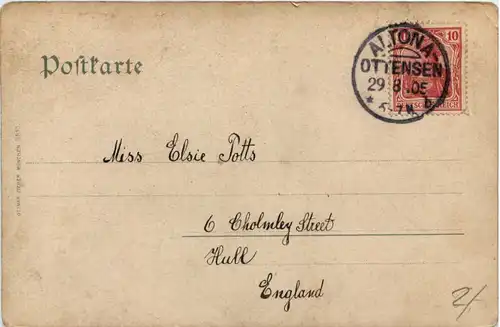 Postkarte
10
ALTONA
OTTENSEN
29 8 .05
* 5-7N b.
Miss Elsie Potts
6 Cholmley Street
Hull
England
2/-